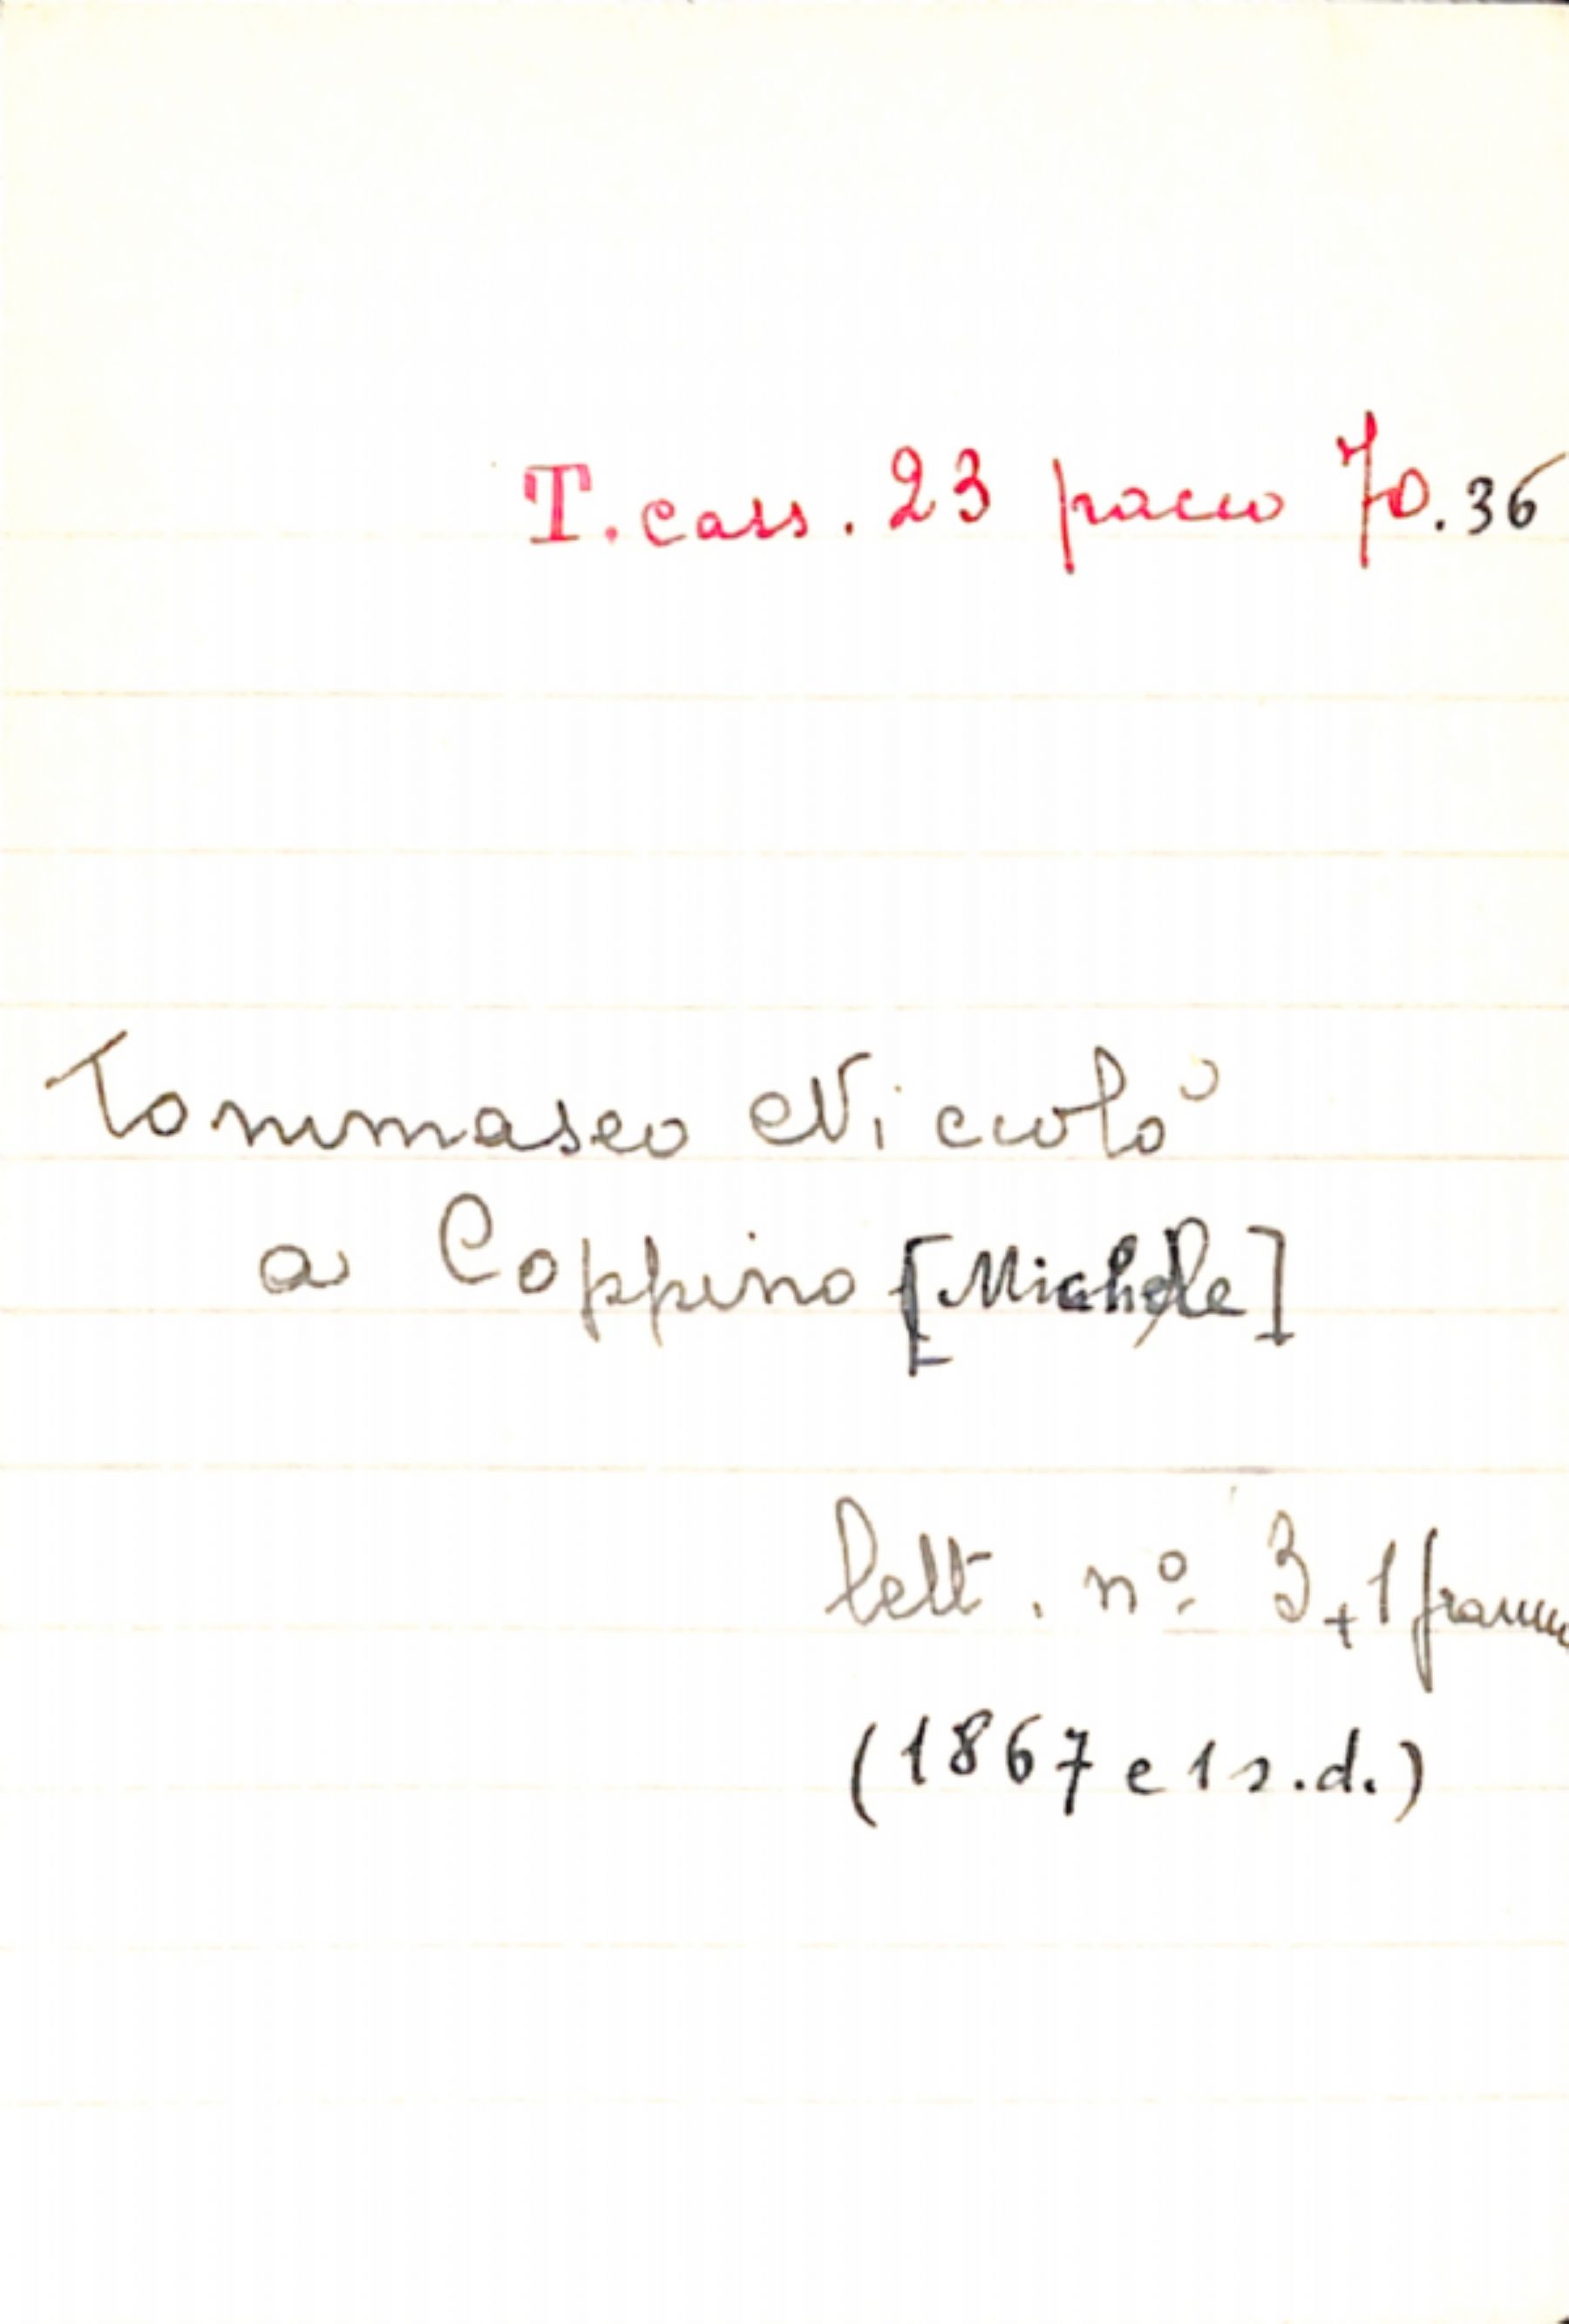 T. cass. 23 pacco 70.36
Tommaseo Niccolò
a Coppino [Michele]
lett. nº 3 + 1 framm
(1867 e 1 s.d.)